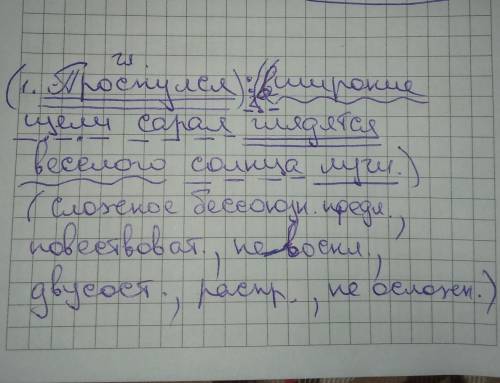 гл
(1. Проснулся) : (в широкие
щели сарая глядятся
веселого солнца лучи.)
(сложное бессоюзн. предл.,
повествоват., не воскл.,
двусост., распр., не осложн.)